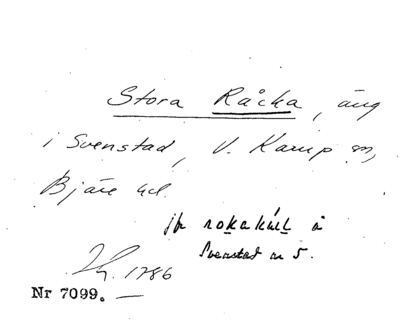 Stora Råcka, äng
i Svenstad, V. Karup sn,
Bjäre hd.
jfr rokakúll å
Svenstad nr 5.
1786
Nr 7099. —